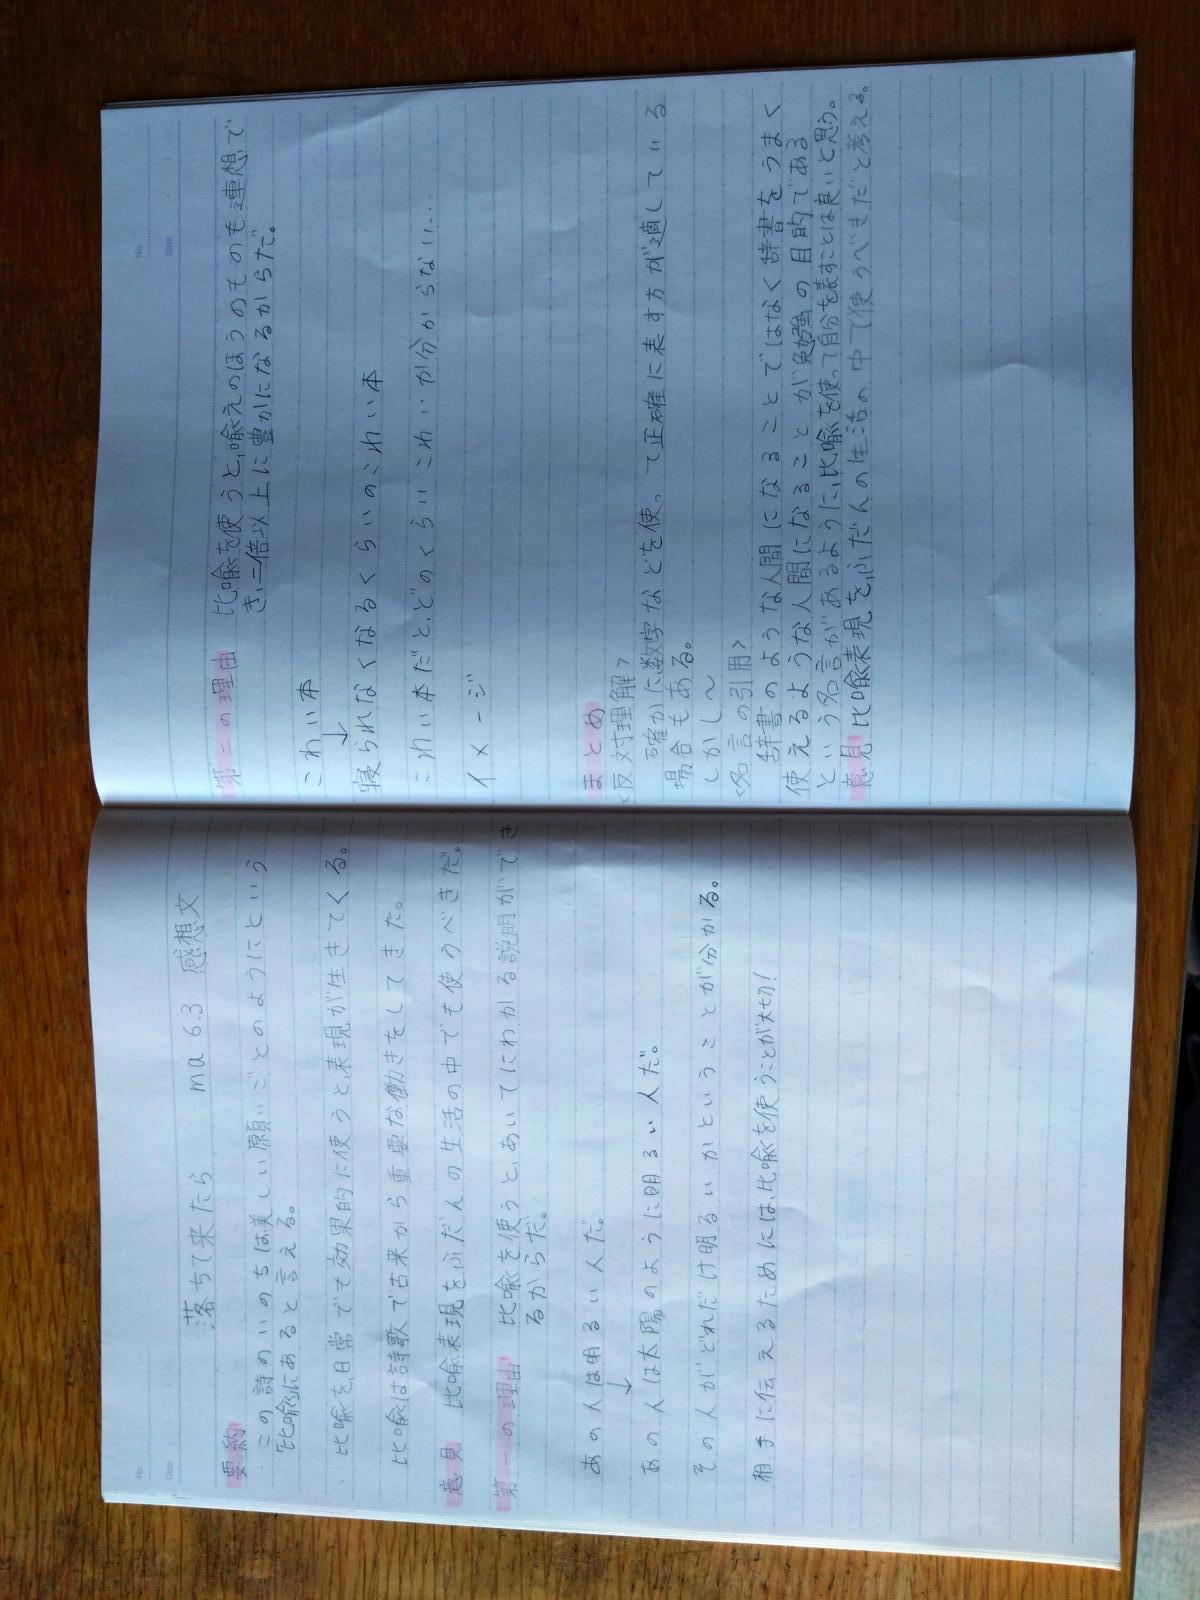 No.
Date
落ちて来たら ma 6.3 感想文
要約
・この詩のいのちは美しい願いごとのようにという
比喩にあると言える。
・比喩を日常でも効果的に使うと表現が生きてくる。
比喩は詩歌で古来から重要な働きをしてきた。
意見 比喩表現をふだんの生活の中でも使うべきだ。
第一の理由 比喩を使うと、あいてにわかる説明ができ
るからだ。
あの人は明るい人だ。
↓
あの人は太陽のように明るい人だ。
その人がどれだけ明るいかということが分かる。
相手に伝えるためには、比喩を使うことが大切!
No.
Date
第二の理由 比喩を使うと、喩えのほうのものも連想で
き、二倍以上に豊かになるからだ。
こわい本
↓
寝られなくなるくらいのこわい本
こわい本だと、どのくらいこわいか分からない....
イメージ
まとめ
<反対理解>
確かに、数字などを使って正確に表す方が適している
場合もある。
しかし〜
<名言の引用>
辞書のような人間になることではなく辞書をうまく
使えるような人間になることが勉強の目的である
という名言があるように、比喩を使って自分を表すことは良いと思う。
意見 比喩表現を、ふだんの生活の中で使うべきだと考える。